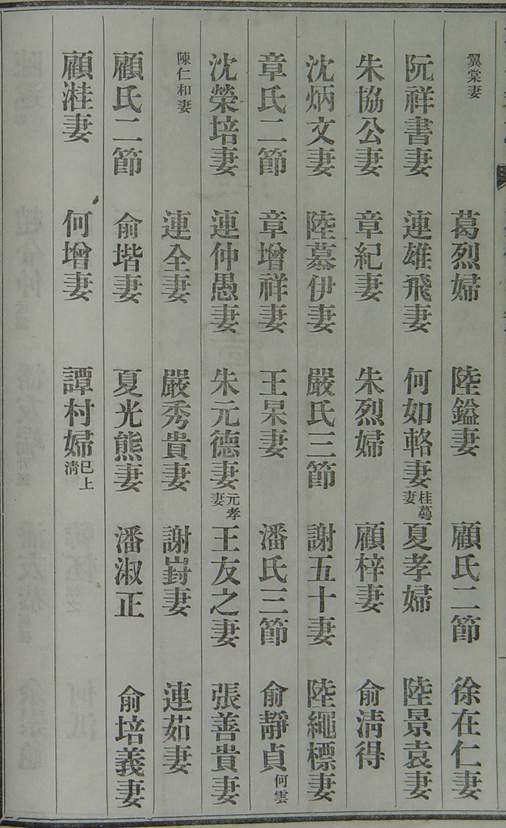 翼棠妻 葛烈婦 陸鎰妻 顧氏二節 徐在仁妻
阮祥書妻 連雄飛妻 何如輅妻桂蕚妻 夏孝婦 陸景袁妻
朱協公妻 章紀妻 朱烈婦 顧梓妻 俞淸得
沈炳文妻 陸慕伊妻 嚴氏三節 謝五十妻 陸繩標妻
章氏二節 章增祥妻 王杲妻 潘氏三節 俞靜貞何雲
沈榮培妻 連仲愚妻 朱元德妻元孝妻 王友之妻 張善貴妻
陳仁和妻 連全妻 嚴秀貴妻 謝崶妻 連茹妻
顧氏二節 俞堦妻 夏光熊妻 潘淑正 俞培義妻
顧溎妻 何增妻 譚村婦已上淸